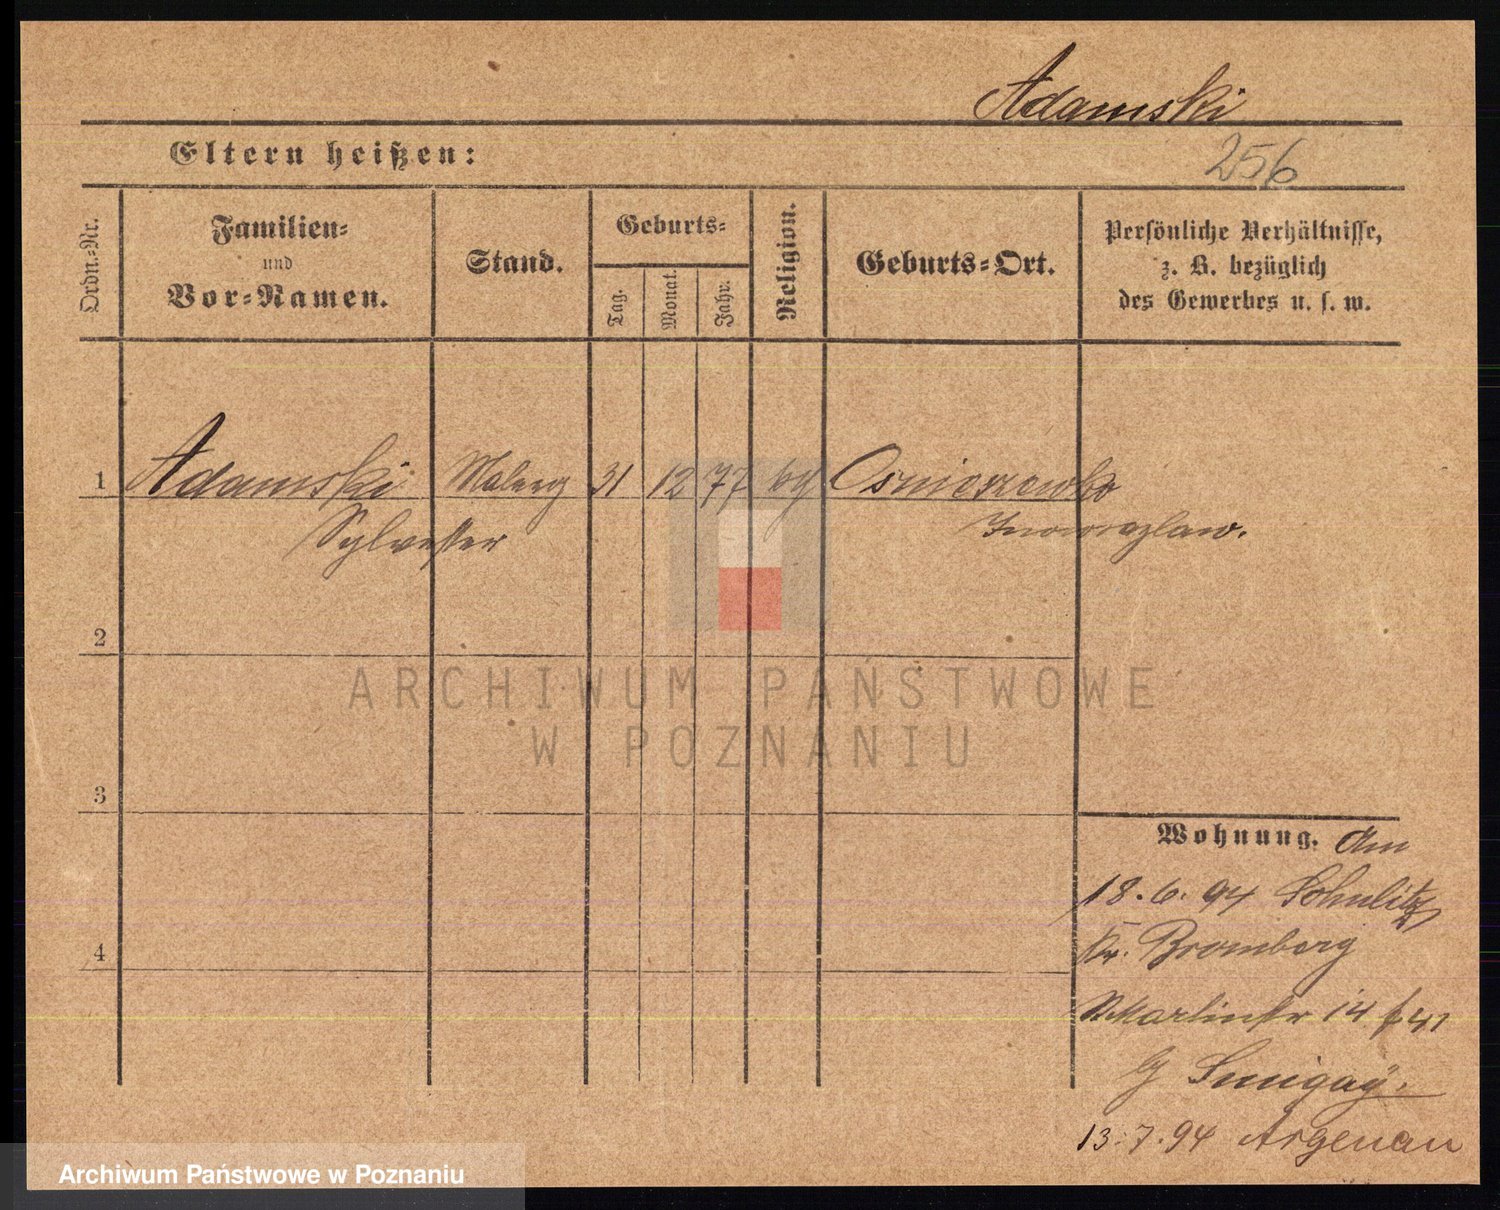 Adamski
Eltern heißen:
256
Ordn.-Nr.
Familien-
und
Vor-Namen.
Stand.
Geburts-
Tag.
Monat.
Jahr.
Religion.
Geburts-Ort.
Persönliche Verhältnisse,
z. B. bezüglich
des Gewerbes u. s. w.
1 Adamski 31 12 77
Sylvester
Inowrazlaw.
2
3
4
Wohnung. Am
18. 6. 94
Kr. Bromberg
Martinstr 14
13. 7. 94 Argenau
ARCHIWUM PAŃSTWOWE
W POZNANIU
Archiwum Państwowe w Poznaniu